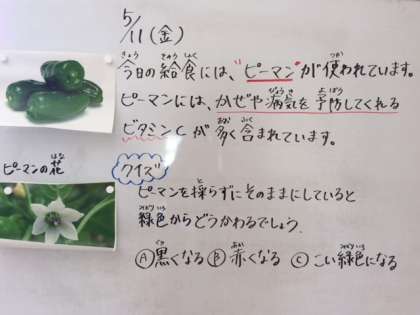 5/11(金)
今日の給食には、"ピーマン"が使われています。
ピーマンには、かぜや病気を予防してくれる
ビタミンCが多く含まれています。
ピーマンの花
クイズ
ピーマンを採らずにそのままにしていると
緑色からどうかわるでしょう。
Ⓐ黒くなる Ⓑ赤くなる Ⓒこい緑色になる